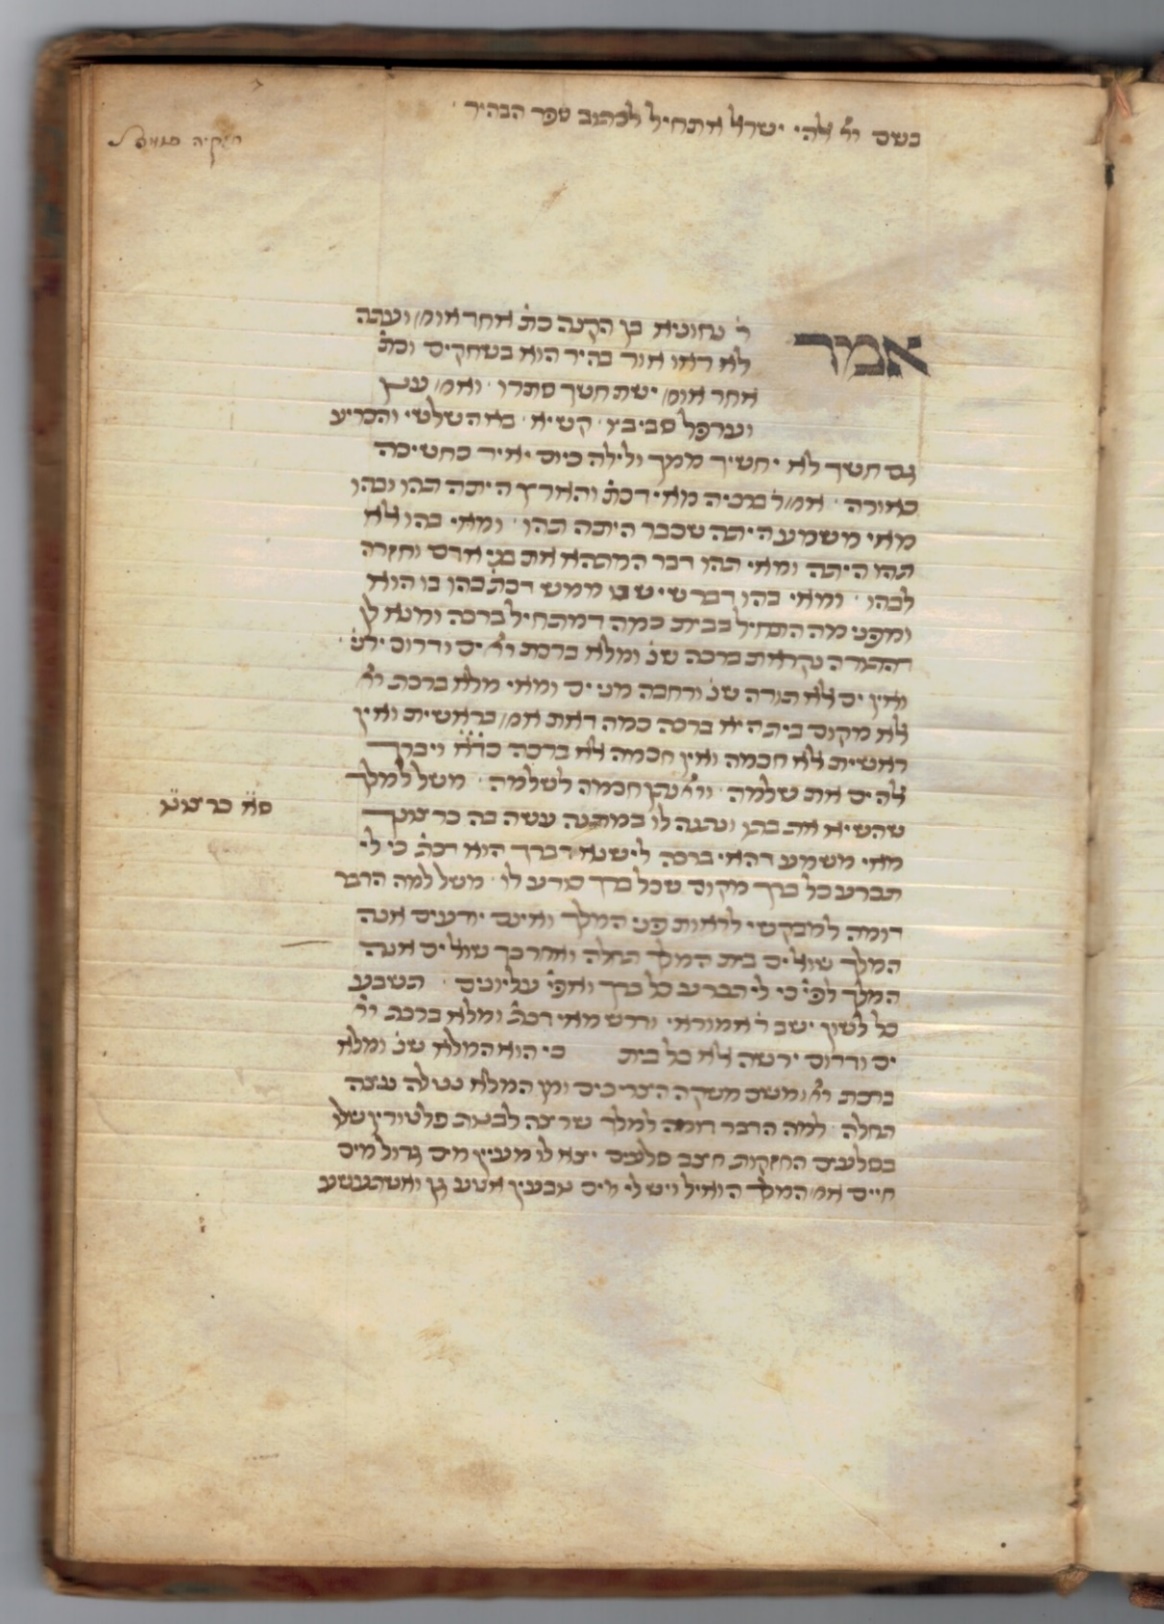 בשם ייי אלהי ישראל אתחיל לכתוב ספר הבהיר
אמר
ר׳ נחוניא בן הקנה כת׳ אחד אומ׳ ועתה
לא ראו אור בהיר הוא בשחקים וכת׳
אחר אומ׳ ישת חשך סתרו ואומ׳ ענן
וערפל סביביו קשיא בא השלישי והכריע
גם חשך לא יחשיך ממך ולילה כיום יאיר כחשיכה
כאורה אמ׳ר ברכיה מאי דכת׳ והארץ היתה תהו ובהו
מאי משמע היתה שכבר היתה תהו ומאי בהו אלא
תהו היתה ומאי תהו דבר המתהא את בני אדם וחזרה
לבהו ומאי בהו דבר שיש בו ממש דכת׳ בהו בו הוא
ומפני מה התחיל בבית כמה דמתחיל ברכה ומנא לן
דהתורה נקראת ברכה שנ׳ ומלא ברכת ייי ים ודרום ירש׳
ואין ים אלא תורה שנ׳ ורחבה מני ים ומאי מלא ברכת ייי
אלא מקום בית היא ברכה כמה דאת אמ׳ בראשית ואין
ראשית אלא חכמה ואין חכמה אלא ברכה כדא׳ ויברך
אלהים את שלמה וייי נתן חכמה לשלמה משל למלך
שהשיא את בתו ונתנה לו במתנה עשה בה כרצונך
ס״א בר
מאי משמע דהאי ברכה לישנא דברך הוא דכת׳ כי לי
תכרע כל ברך מקום שכל ברך כורע לו משל למה הדבר
דומה למבקשי לראות פני המלך ואינם יודעים אנה
המלך שואלים בית המלך תחלה ואחר כך שואלים אנה
המלך לפי׳ כי לי תכרע כל ברך ואפי׳ עליונים תשבע
כל לשון ישב ר׳ אמוראי ודרש מאי דכת׳ ומלא ברכת ייי
ים ודרום ירשה אלא כל בית כי הוא המלא שנ׳ ומלא
ברכת ייי ומשם משקה הצריכים ומן המלא נטלה עצה
תחלה למה הדבר דומה למלך שרצה לבנות פלטורין שלו
בסלעים החזקות חיצב סלעים יצא לו מעיין מים גדול מים
חיים אמ׳ המלך הואיל ויש לי מים נובעין אטע גן ואשתעשע